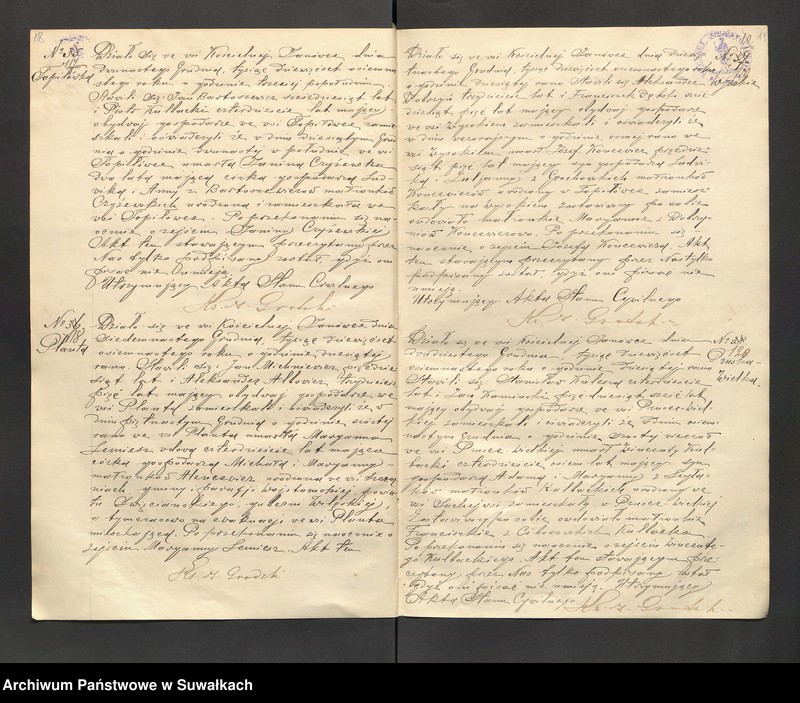 18.
Topiłówka
Działo się we wsi Kościelnej Janówce, dnia
dwunastego Grudnia, tysiąc dziewięćset osiemna
stego roku o godzinie trzeciej popołudniu
Stawili się: Jan Bartoszewicz sześćdziesiąt lat
i Piotr Kułbacki czterdzieście lat mający
obydwaj gospodarze we wsi Topiłówce zamie
szkali i oświadczyli że w dniu dziesiątym Grud
nia o godzinie dwunastej w południe we wsi
Topiłówce umarła Janina Czyżewska
dwa lata mająca córka gospodarza Lud
wika i Anny z Bartoszewiczów małżonków
Czyżewskich urodzona i zamieszkała we
wsi Topiłówce. Po przekonaniu się na
ocznie o zejściu Janiny Czyżewskiej
Akt ten stawającym przeczytany przez
Nas tylko podpisany został, gdyż oni
pisać nie umieją.
Utrzymujący Akta Stanu Cywilnego
Ks. Grodzki
Planta
Działo się we wsi Kościelnej Janówce dnia
siedemnastego Grudnia, tysiąc dziewięćset
osiemnastego roku, o godzinie dziesiątej
rano. Stawili się: Jan Michniewicz
siąt lat i Aleksander trzydzieście
pięć lat mający obydwaj gospodarze we
wsi Planta zamieszkali i oświadczyli że w
dniu piętnastym Grudnia o godzinie szóstej
rano we wsi Planta umarła Maryanna
wdowa czterdzieście lat mająca
córka gospodarza Michała i Maryanny
małżonków urodzona we wsi
gminy i parafji powia
tu Święciańskiego, gubernii Wileńskiej,
a tymczasowo na ewakuacji we wsi Planta
mieszkająca. Po przekonaniu się naocznie o
zejściu Maryanny Akt ten
Ks. Grodzki
Działo się we wsi Kościelnej Janówce dnia
o godzinie dziesiątej rano Stawili się Aleksander
trzydzieście lat i Franciszek
dziesiąt pięć lat mający obydwaj gospodarze
we wsi Wysokiem zamieszkali i oświadczyli że
w dniu wczorajszym o godzinie ósmej rano we
wsi Wysokiem umarł Józef Koncewicz
siąt pięć lat mający syn gospodarza Ludwi
ka i Julianny z Grochowskich małżonków
Koncewiczów urodzony w Topiłówce zamiesz
kały na Wysokiem zostawiwszy po sobie
owdowiałą małżonkę Maryannę z
Koncewiczową. Po przekonaniu się
naocznie o zejściu Józefa Koncewicza, Akt
ten stawającym przeczytany przez Nas tylko
podpisany został, gdyż oni pisać nie
umieją.
Utrzymujący Akta Stanu Cywilnego
Ks. Grodzki
Pruska-
Wielka.
Działo się we wsi Kościelnej Janówce dnia
dwudziestego Grudnia, tysiąc dziewięćset
osiemnastego roku o godzinie dziesiątej rano
Stawili się: Stanisław czterdzieście
lat i Jan Kamiński pięćdziesiąt sześć lat
mający obydwaj gospodarze we wsi Prusce-Wiel
kiej zamieszkali i oświadczyli że w dniu osiem
nastym Grudnia o godzinie szóstej wieczór
we wsi Prusce Wielkiej umarł Wincenty Kuł
backi czterdzieście osiem lat mający syn
gospodarza Adama i Maryanny z
małżonków Kułbackich urodzony we
wsi zamieszkały w Prusce-Wielkiej
Zostawiwszy po sobie owdowiałą małżonkę
Franciszkę z Kułbacką
Po przekonaniu się naocznie o zejściu Wincente-
go Kułbackiego. Akt ten stawającym prze
czytany przez Nas tylko podpisany został
gdyż oni pisać nie umieją. Utrzymujący
Akta Stanu Cywilnego Ks. Grodzki
Archiwum Państwowe w Suwałkach